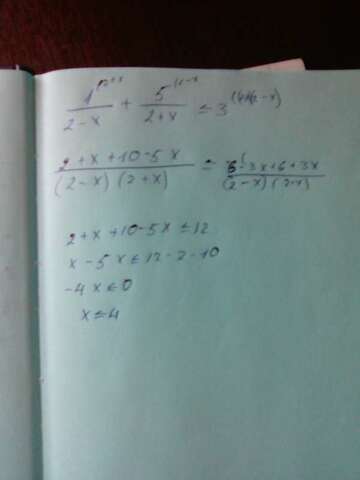 1^(2+x / 2-x + 5^(2-x / 2+x ≤ 3^(2+x)(2-x)
2+x+10-5x / (2-x)(2+x) ≤ 6-3x+6+3x / (2-x)(2+x)
2+x+10-5x≤12
x-5x≤12-2-10
-4x≤0
x≤4